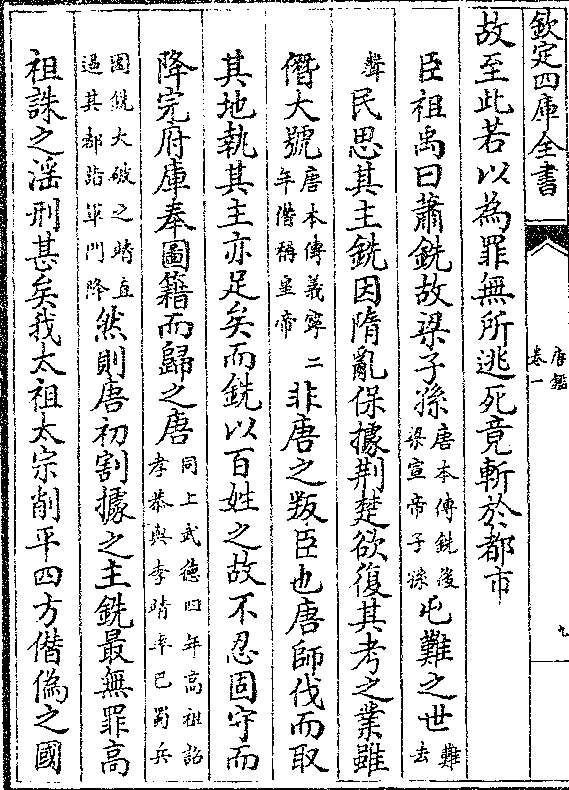 欽定四庫全書
唐鑑
卷一
九
故至此若以為罪無所逃死竟斬於都市
臣祖禹曰蕭銑故梁子孫唐本傳銑後梁宣帝子孫屯難之世難去
聲民思其主銑因隋亂保據荆楚欲復其考之業雖
僭大號唐本傳義寧二年僭稱皇帝非唐之叛臣也唐師伐而取
其地執其主亦足矣而銑以百姓之故不忍固守而
降完府庫奉圖籍而歸之唐同上武德四年高祖詔孝恭與李靖率巴蜀兵
圖銑大破之靖直逼其都詣軍門降然則唐初割據之主銑最無罪高
祖誅之淫刑甚矣我太祖太宗削平四方僭偽之國